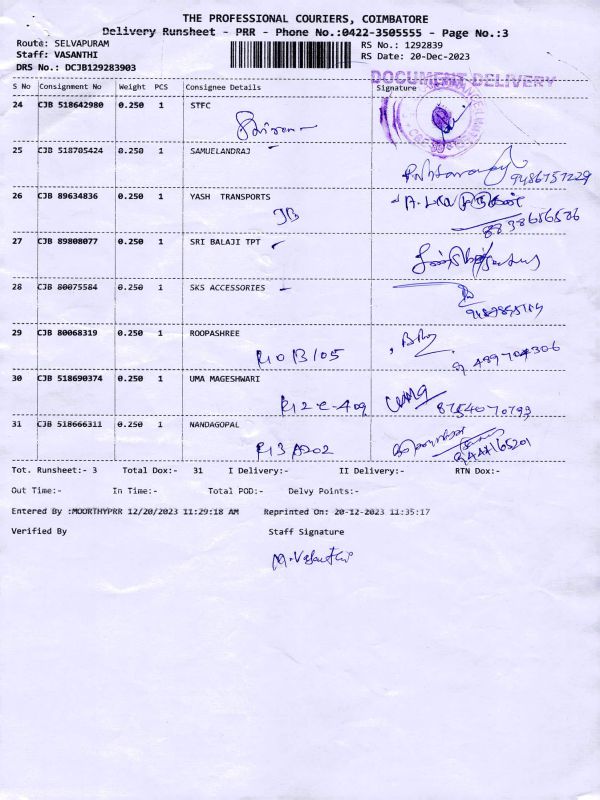 THE PROFESSIONAL COURIERS, COIMBATORE
Delivery Runsheet - PRR - Phone No.:0422-3505555 - Page No.:3
Route: SELVAPURAM RS No.: 1292839
Staff: VASANTHI RS Date: 20-Dec-2023
DRS No.: DCJB129283903
DOCUMENT DELIVERY
S No Consignment No Weight PCS Consignee Details Signature
24 CJB 518642980 0.250 1 STFC
25 CJB 518705424 0.250 1 SAMUELANDRAJ
9486757229
26 CJB 89634836 0.250 1 YASH TRANSPORTS
8838656526
27 CJB 89808077 0.250 1 SRI BALAJI TPT
28 CJB 80075584 0.250 1 SKS ACCESSORIES
29 CJB 80068319 0.250 1 ROOPASHREE
R10 B/05
30 CJB 518690374 0.250 1 UMA MAGESHWARI
R12 C-409 Uma 8754070793
31 CJB 518666311 0.250 1 NANDAGOPAL
R13 A202
Tot. Runsheet:- 3 Total Dox:- 31 I Delivery:- II Delivery:- RTN Dox:-
Out Time:- In Time:- Total POD:- Delvy Points:-
Entered By :MOORTHYPRR 12/20/2023 11:29:18 AM Reprinted On: 20-12-2023 11:35:17
Verified By Staff Signature
M.Vasanthi